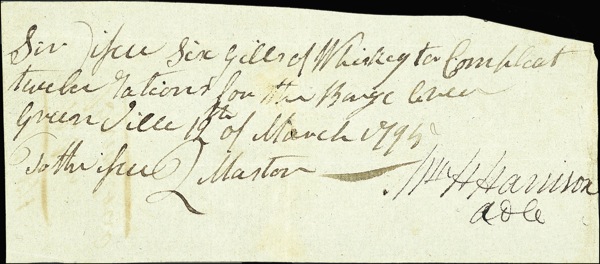 Sir Issue Six Gills of Whiskey to Compleat
twelve rations for the Barge Crew
Green Ville 12th of March 1795
To the issue Q Master Wm H Harrison
ADC